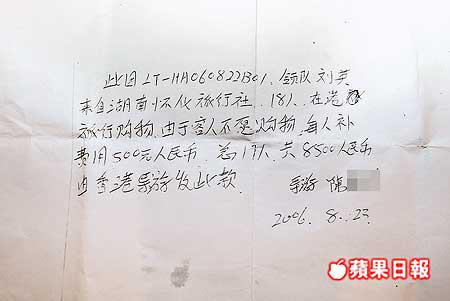 此团 LT-HA060822B01. 领队 刘英
来自湖南怀化旅行社. 18人. 在港
旅行购物. 由于客人不愿购物. 每人补
费用500元人民币. 总17人. 共8500人民币
由香港导游发此款.
导游 陈
2006. 8. 23
蘋果日報